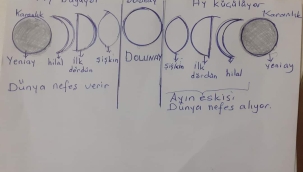 Ay küçülüyor
Karanlık Karanlık
Yeniay hilal İlk dördün şişkin DOLUNAY şişkin İlk dördün hilal yeniay
Dünya nefes verir
Ayın eskisi
Dünya nefes alıyor.